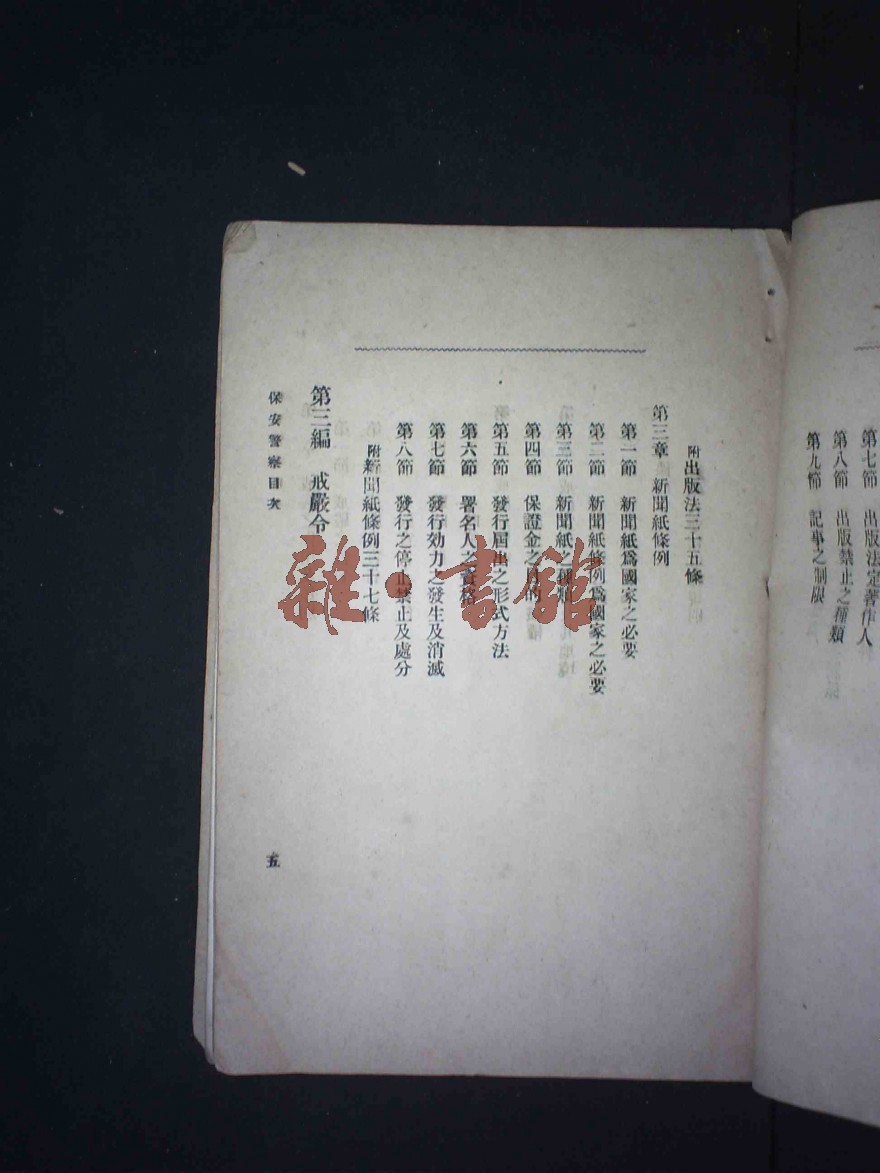 第七節 出版法定著作人
第八節 出版禁止之種類
第九節 記事之制限
附出版法三十五條
第三章 新聞紙條例
第一節 新聞紙爲國家之必要
第二節 新聞紙條例爲國家之必要
第三節 新聞紙之種類
第四節 保證金之目的
第五節 發行屆出之形式方法
第六節 署名人之資格
第七節 發行効力之發生及消滅
第八節 發行之停止禁止及處分
附新聞紙條例三十七條
第三編 戒嚴令
保安警察目次
五
雜·書館